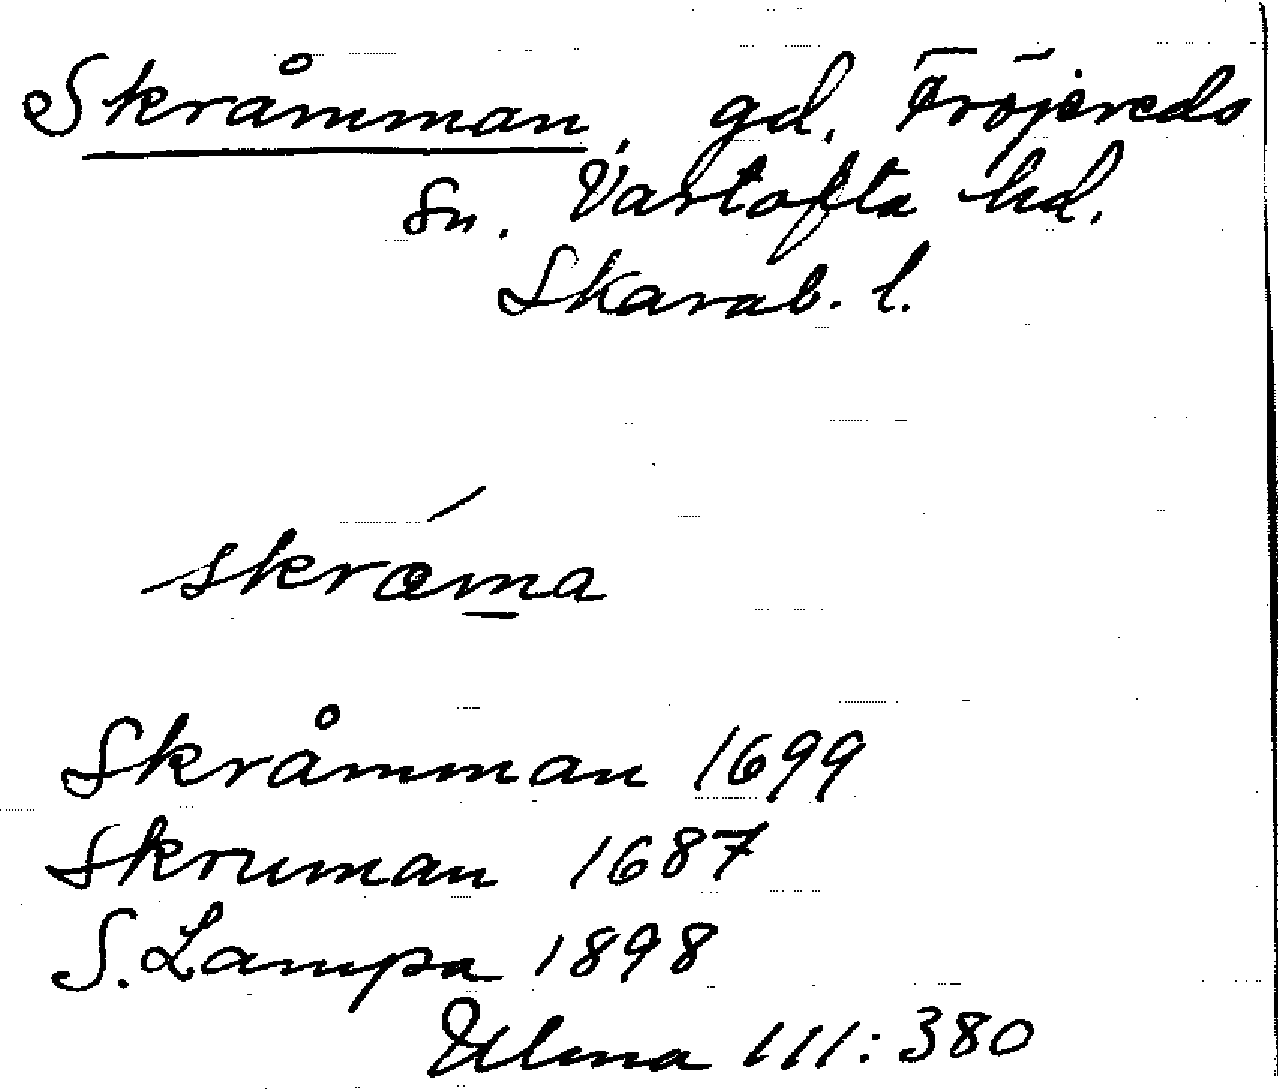 Skråmman, gd. Fröjereds
sn. Vartofta hd.
Skarab. l.
skræma
Skråmman 1699
Skruman 1687
S. Lampa 1898
Ulma 111:380